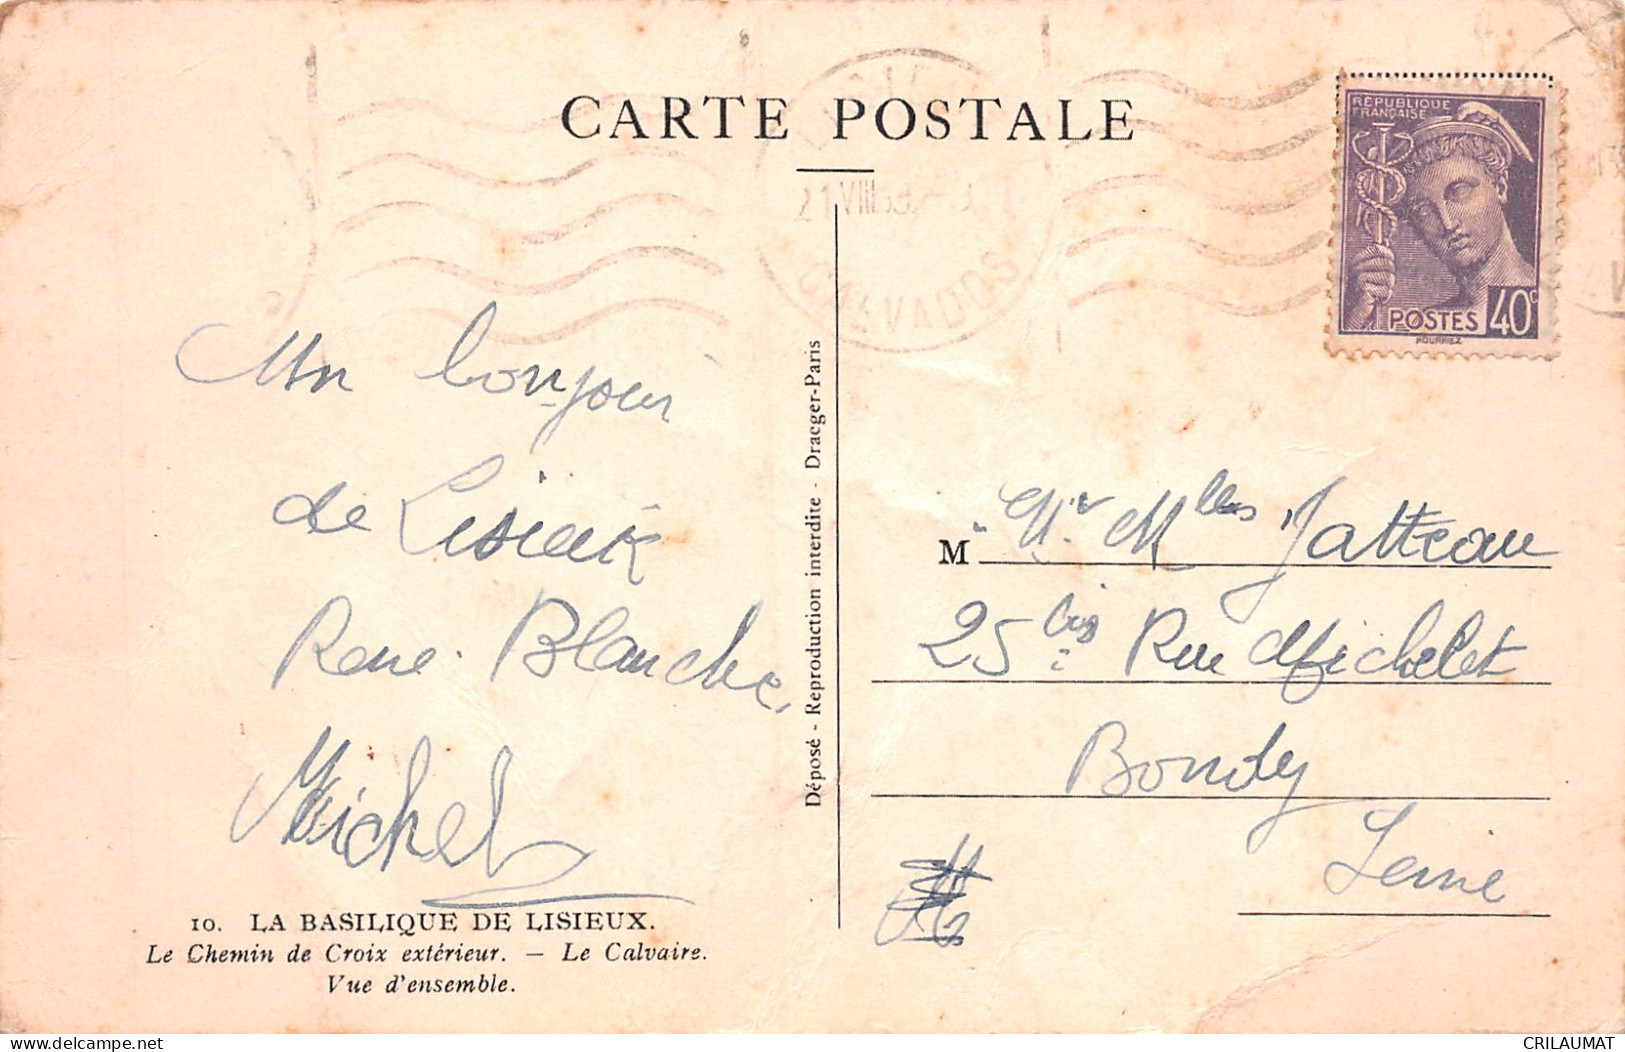 CARTE POSTALE
RÉPUBLIQUE
FRANÇAISE
POSTES 40c
21 VIII
CALVADOS
Un bonjour
de Lisieux
René. Blanche,
Michel
Déposé - Reproduction interdite - Draeger-Paris
M Mr Mlles Jatteau
25 bis Rue Michelet
Bondy
Seine
10. LA BASILIQUE DE LISIEUX.
Le Chemin de Croix extérieur. — Le Calvaire.
Vue d'ensemble.
CRILAUMAT